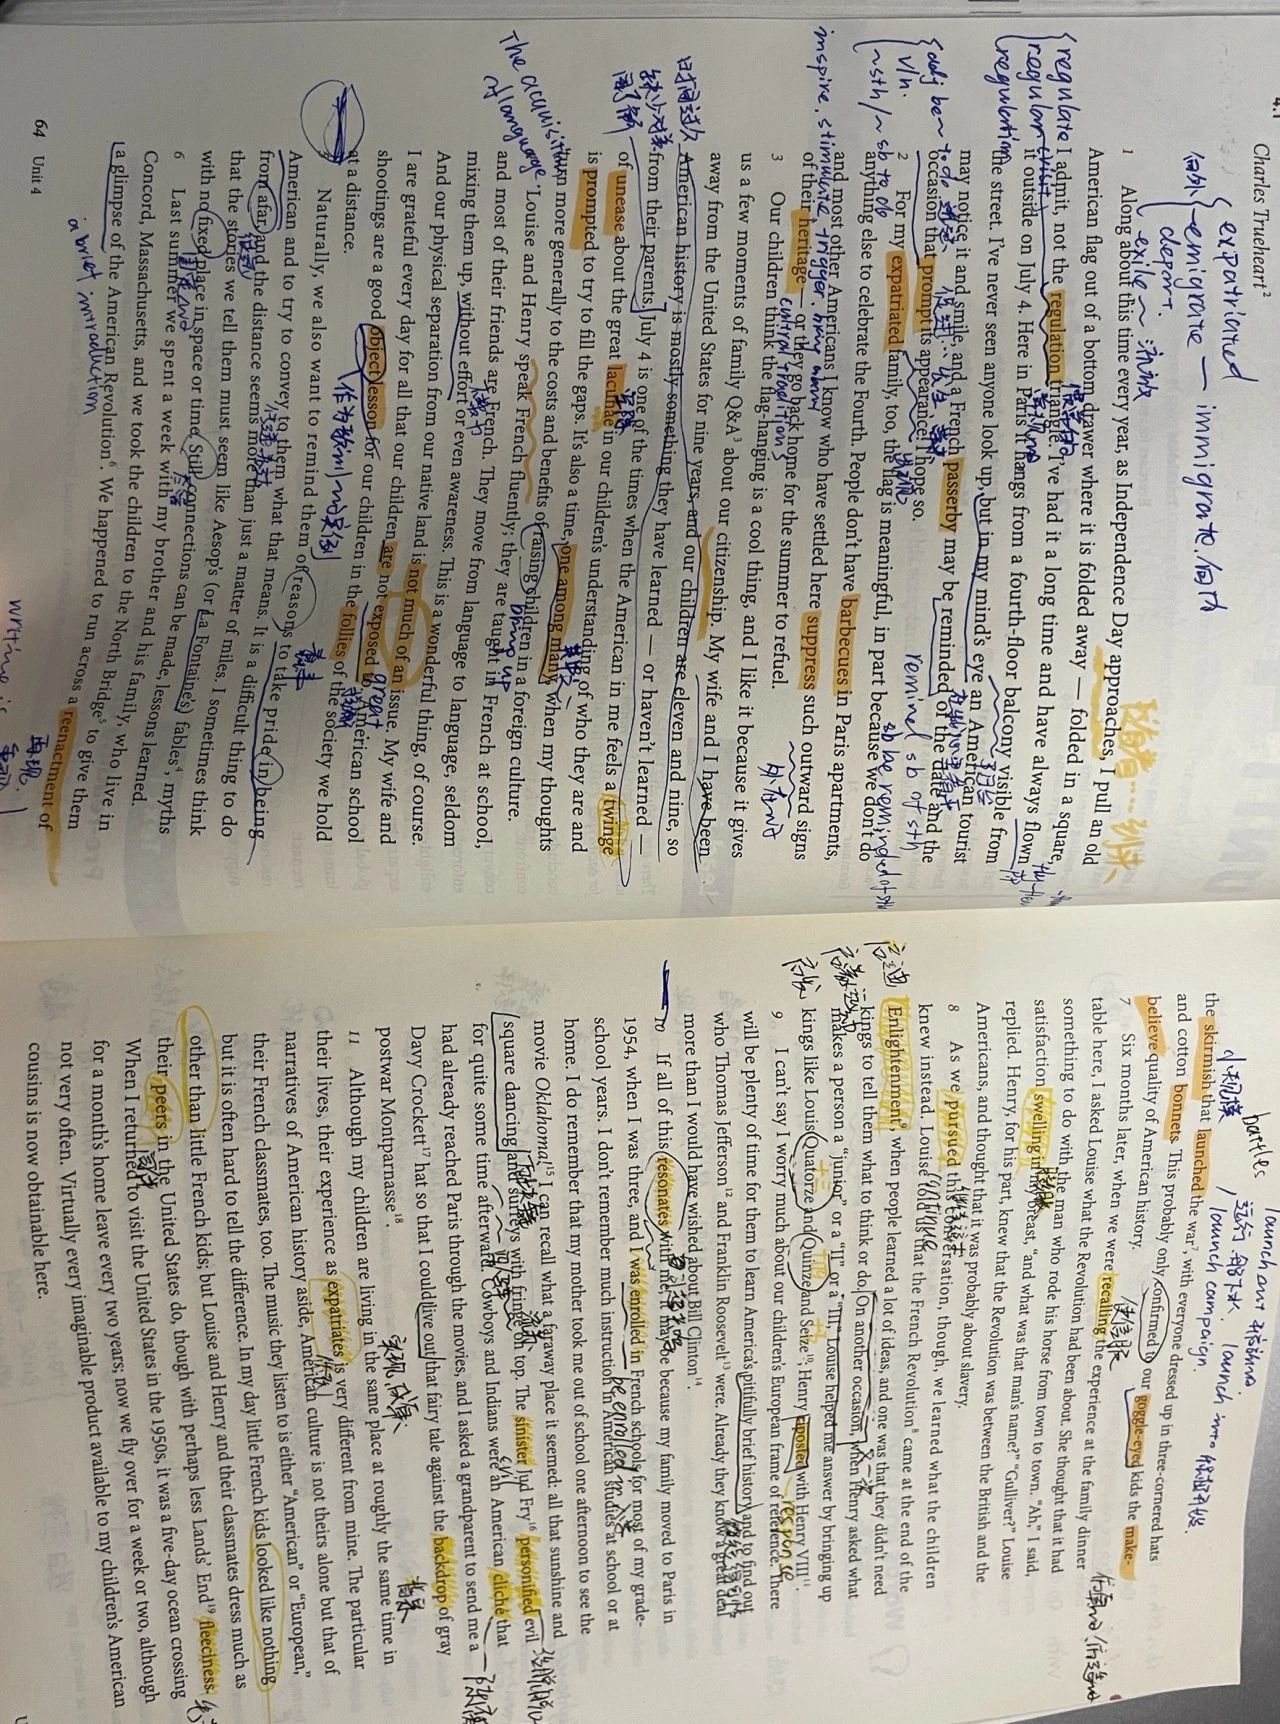 Charles Trueheart²
expatriated
emigrate — immigrate.
exile ~
deport.
1 Along about this time every year, as Independence Day approaches, I pull an old
American flag out of a bottom drawer where it is folded away — folded in a square,
I admit, not the regulation triangle. I've had it a long time and have always flown
it outside on July 4. Here in Paris it hangs from a fourth-floor balcony visible from
the street. I've never seen anyone look up, but in my mind's eye an American tourist
may notice it and smile, and a French passerby may be reminded of the date and the
occasion that prompt its appearance. I hope so.
regulate
regular
regulation
remind sb of sth
sb be reminded of sth
2 For my expatriated family, too, the flag is meaningful, in part because we don't do
anything else to celebrate the Fourth. People don't have barbecues in Paris apartments,
and most other Americans I know who have settled here suppress such outward signs
of their heritage — or they go back home for the summer to refuel.
inspire, stimulate, trigger, bring about
cultural traditions
3 Our children think the flag-hanging is a cool thing, and I like it because it gives
us a few moments of family Q&A³ about our citizenship. My wife and I have been
away from the United States for nine years, and our children are eleven and nine, so
American history is mostly something they have learned — or haven't learned —
from their parents. July 4 is one of the times when the American in me feels a twinge
of unease about the great lacunae in our children's understanding of who they are and
is prompted to try to fill the gaps. It's also a time, one among many, when my thoughts
turn more generally to the costs and benefits of raising children in a foreign culture.
bring up
The acquisition
of language
4 Louise and Henry speak French fluently; they are taught in French at school,
and most of their friends are French. They move from language to language, seldom
mixing them up, without effort or even awareness. This is a wonderful thing, of course.
And our physical separation from our native land is not much of an issue. My wife and
I are grateful every day for all that our children are not exposed to. American school
shootings are a good object lesson for our children in the follies of the society we hold
at a distance.
great
5 Naturally, we also want to remind them of reasons to take pride in being
American and to try to convey to them what that means. It is a difficult thing to do
from afar, and the distance seems more than just a matter of miles. I sometimes think
that the stories we tell them must seem like Aesop's (or La Fontaine's) fables⁴, myths
with no fixed place in space or time. Still, connections can be made, lessons learned.
6 Last summer we spent a week with my brother and his family, who live in
Concord, Massachusetts, and we took the children to the North Bridge⁵ to give them
a glimpse of the American Revolution⁶. We happened to run across a reenactment of
a brief introduction
再现
64 Unit 4
battles
launch campaign.
the skirmish that launched the war⁷, with everyone dressed up in three-cornered hats
and cotton bonnets. This probably only confirmed to our goggle-eyed kids the make-
believe quality of American history.
7 Six months later, when we were recalling the experience at the family dinner
table here, I asked Louise what the Revolution had been about. She thought that it had
something to do with the man who rode his horse from town to town. "Ah," I said,
satisfaction swelling in my breast, "and what was that man's name?" "Gulliver?" Louise
replied. Henry, for his part, knew that the Revolution was between the British and the
Americans, and thought that it was probably about slavery.
8 As we pursued this conversation, though, we learned what the children
knew instead. Louise told us that the French Revolution⁸ came at the end of the
Enlightenment⁹, when people learned a lot of ideas, and one was that they didn't need
kings to tell them what to think or do. On another occasion, when Henry asked what
makes a person a "junior" or a "II" or a "III," Louise helped me answer by bringing up
kings like Louis Quatorze and Quinze and Seize¹⁰; Henry riposted with Henry VIII¹¹.
response
9 I can't say I worry much about our children's European frame of reference. There
will be plenty of time for them to learn America's pitifully brief history and to find out
who Thomas Jefferson¹² and Franklin Roosevelt¹³ were. Already they know a great deal
more than I would have wished about Bill Clinton¹⁴.
10 If all of this resonates with me, it may be because my family moved to Paris in
1954, when I was three, and I was enrolled in French schools for most of my grade-
school years. I don't remember much instruction in American studies at school or at
home. I do remember that my mother took me out of school one afternoon to see the
movie Oklahoma!¹⁵ I can recall what a faraway place it seemed: all that sunshine and
square dancing and surreys with fringe on top. The sinister Jud Fry¹⁶ personified evil
for quite some time afterward. Cowboys and Indians were an American cliché that
had already reached Paris through the movies, and I asked a grandparent to send me a
Davy Crockett¹⁷ hat so that I could live out that fairy tale against the backdrop of gray
postwar Montparnasse¹⁸.
背景
11 Although my children are living in the same place at roughly the same time in
their lives, their experience as expatriates is very different from mine. The particular
narratives of American history aside, American culture is not theirs alone but that of
their French classmates, too. The music they listen to is either "American" or "European,"
but it is often hard to tell the difference. In my day little French kids looked like nothing
other than little French kids; but Louise and Henry and their classmates dress much as
their peers in the United States do, though with perhaps less Lands' End¹⁹ fleeciness.
When I returned to visit the United States in the 1950s, it was a five-day ocean crossing
for a month's home leave every two years; now we fly over for a week or two, although
not very often. Virtually every imaginable product available to my children's American
cousins is now obtainable here.